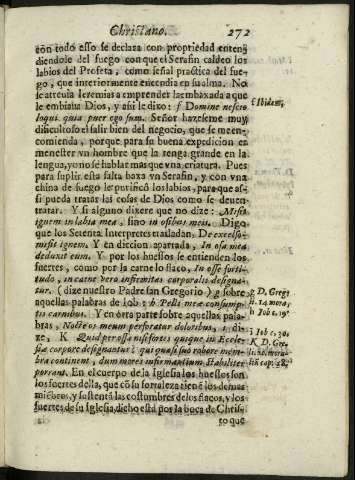 Christano.
272
cõn todo esso se declara con propriedad enten-
diendole del fuego con que el Serafin caldeò los
labios del Profeta, como señal practica del fue-
go, que interiormente encendia en su alma. No
se atreuia Ieremias a emprender la embaxada a que
le embiaua Dios, y assi le dixo: f Domine nescio
loqui. quia puer ego sum. Señor hazeseme muy
dificultoso el salir bien del negocio, que se meen-
comienda, porque para su buena expedicion en
menester vn hombre que la renga grande en la
lengua, yo no sè hablar màs que vna criatura. Pues
para suplir esta falta baxa vn Serafin, y con vna
china de fuego le purificò los labios, para que as-
si pueda tratar las cosas de Dios como se deuen
tratar. Y si alguno dixere que no dize: Misit
ignem in labia mea, sino in osibus meis. Digo
que los Setenta Interpretes trasladan. De excelso
misit ignem. Y en diccion apartada, In osa mea
deduxit eum. Y por los huessos se entienden los
fuertes, como por la carne lo flaco, In osse forti-
tudo, in carne vero infirmitas corporalis designa-
tur. (dize nuestro Padre san Gregorio) g sobre
aquellas palabras de Iob: h Pelli meæ consump-
tis carnibus. Y en otra parte sobre aquellas pala-
bras, Nocte os meum perforatur doloribus, i di-
ze, K Quid per ossa nisi fortes quique in Eccle-
siæ corpore designantur? qui quasi suo robore mem-
bra continent, dum mores infirmantium stabiliter
portant. En el cuerpo de la Iglesia los huessos son
los fuertes della, que cõ su fortaleza tienē los demas
miēbros, y sustentã las costumbres de los flacos, y los
fuertes de su Iglesia, dicho està por la boca de Chris-
to que
f Ibidem,
g D. Greg.
h Iob c. 19
i Iob c. 30.
K D. Gre.